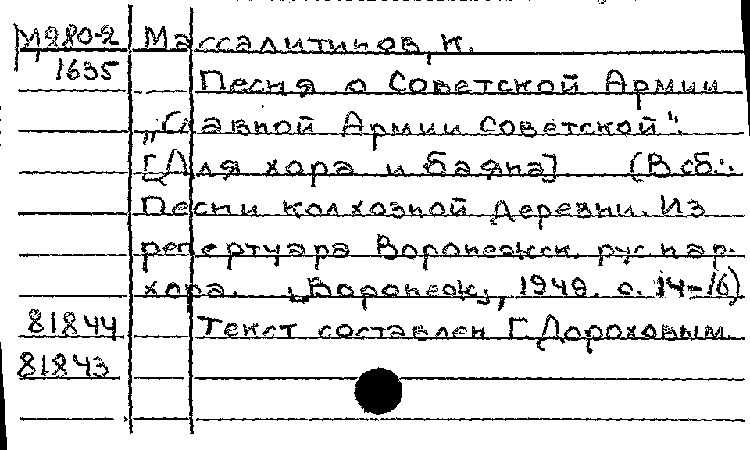 М280-2 Массалитинов, К.
1635 Песня о Советской Армии
„Славной Армии Советской".
[Для хора и баяна] (В сб.:
Песни колхозной деревни. Из
репертуара Воронежск. рус. нар.
хора. Воронеж, 1949. с. 14-16)
81844 Текст составлен Г. Дороховым
81843